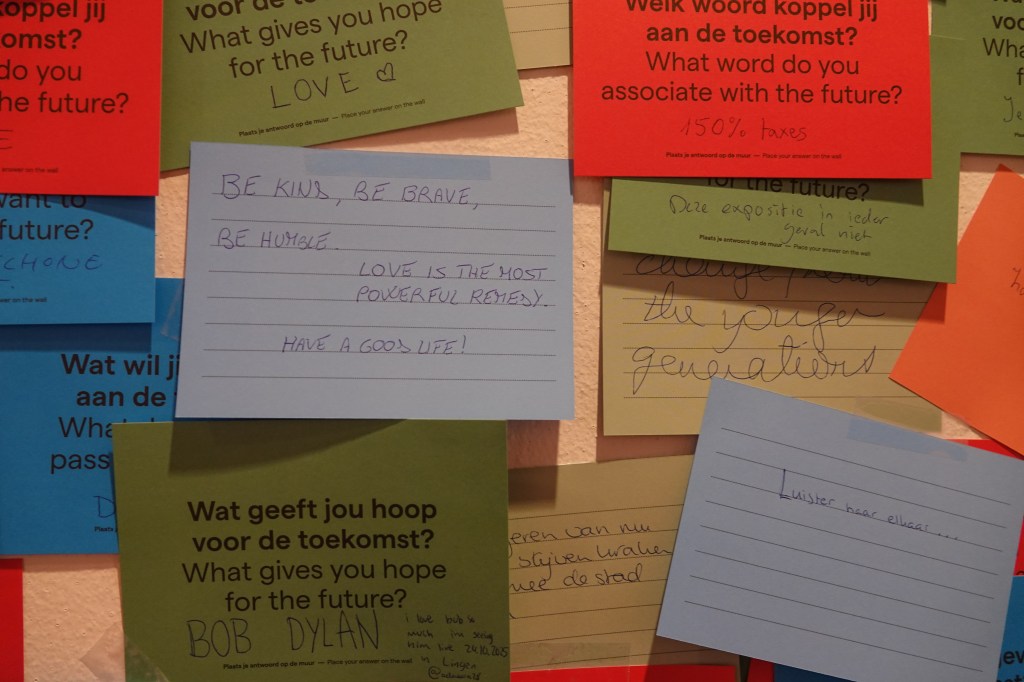 koppel jij
komst?
do you
he future?
E
answer on the wall
voor de to
What gives you hope
for the future?
LOVE ♡
Plaats je antwoord op de muur — Place your answer on the wall
Welk woord koppel jij
aan de toekomst?
What word do you
associate with the future?
150% taxes
Plaats je antwoord op de muur — Place your answer on the wall
voo
Wha
f
Je
want to
future?
CHONE
answer on the wall
BE KIND, BE BRAVE,
BE HUMBLE.
LOVE IS THE MOST
POWERFUL REMEDY.
HAVE A GOOD LIFE!
for the future?
Deze expositie in ieder
geval niet
Plaats je antwoord op de muur — Place your answer on the wall
change from
the younger
generations
Wat wil ji
aan de
What
pass
D
Plaats j
Wat geeft jou hoop
voor de toekomst?
What gives you hope
for the future?
BOB DYLAN
i love bob so
much im seeing
him live 24.10.2025
in Lingen
Plaats je antwoord op de muur — Place your answer on the wall
eren van nu
stijven kraken
mee de stad
Luister naar elkaar...